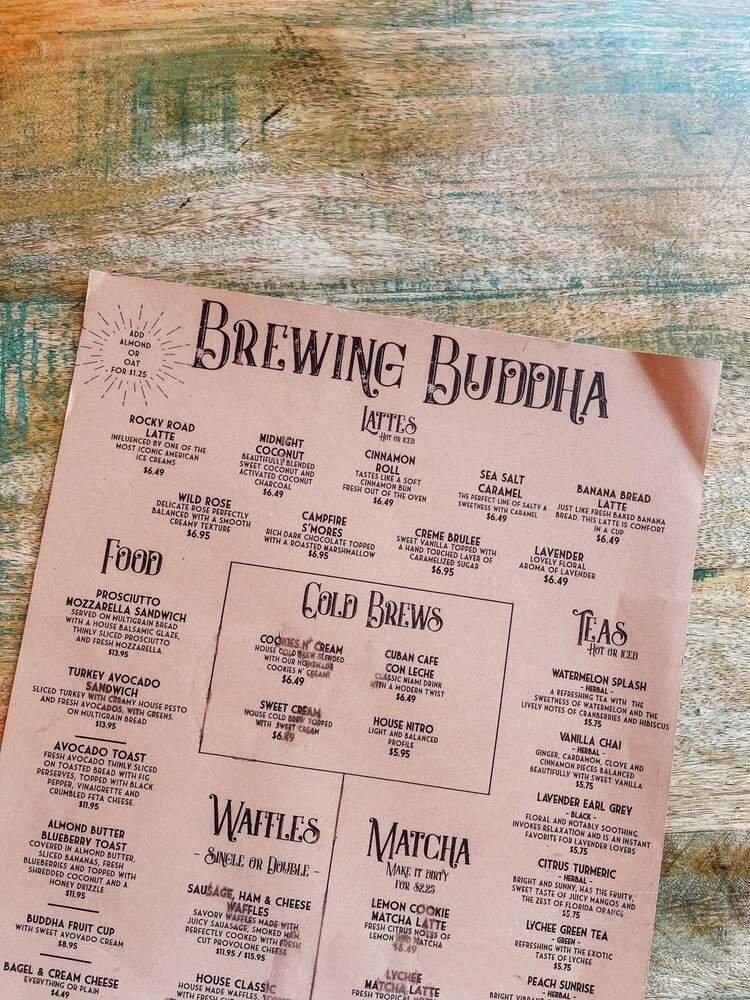 ADD
ALMOND
OR
OAT
FOR $1.25
BREWING BUDDHA
LATTES
HOT OR ICED
ROCKY ROAD
LATTE
INFLUENCED BY ONE OF THE
MOST ICONIC AMERICAN
ICE CREAMS
$6.49
MIDNIGHT
COCONUT
BEAUTIFULLY BLENDED
SWEET COCONUT AND
ACTIVATED COCONUT
CHARCOAL
$6.49
CINNAMON
ROLL
TASTES LIKE A SOFT
CINNAMON BUN
FRESH OUT OF THE OVEN
$6.49
SEA SALT
CARAMEL
THE PERFECT LINE OF SALTY &
SWEETNESS WITH CARAMEL
$6.49
BANANA BREAD
LATTE
JUST LIKE FRESH BAKED BANANA
BREAD. THIS LATTE IS COMFORT
IN A CUP
$6.49
WILD ROSE
DELICATE ROSE PERFECTLY
BALANCED WITH A SMOOTH
CREAMY TEXTURE
$6.95
CAMPFIRE
S'MORES
RICH DARK CHOCOLATE TOPPED
WITH A ROASTED MARSHMALLOW
$6.95
CREME BRULEE
SWEET VANILLA TOPPED WITH
A HAND TORCHED LAYER OF
CARAMELIZED SUGAR
$6.95
LAVENDER
LOVELY FLORAL
AROMA OF LAVENDER
$6.49
FOOD
PROSCIUTTO
MOZZARELLA SANDWICH
SERVED ON MULTIGRAIN BREAD
WITH A HOUSE BALSAMIC GLAZE,
THINLY SLICED PROSCIUTTO
AND FRESH MOZZARELLA.
$13.95
TURKEY AVOCADO
SANDWICH
SLICED TURKEY WITH CREAMY HOUSE PESTO
AND FRESH AVOCADOS. WITH GREENS.
ON MULTIGRAIN BREAD
$13.95
AVOCADO TOAST
FRESH AVOCADO THINLY SLICED
ON TOASTED BREAD WITH FIG
PERSERVES, TOPPED WITH BLACK
PEPPER, VINAIGRETTE AND
CRUMBLED FETA CHEESE.
$11.95
ALMOND BUTTER
BLUEBERRY TOAST
COVERED IN ALMOND BUTTER,
SLICED BANANAS, FRESH
BLUEBERRIES AND TOPPED WITH
SHREDDED COCONUT AND A
HONEY DRIZZLE
$11.95
BUDDHA FRUIT CUP
WITH SWEET AVOVADO CREAM
$8.95
BAGEL & CREAM CHEESE
EVERYTHING OR PLAIN
$4.49
COLD BREWS
COOKIES N' CREAM
HOUSE COLD BREW BLENDED
WITH OUR HOMEMADE
COOKIES N' CREAM
$6.49
CUBAN CAFE
CON LECHE
CLASSIC MIAMI DRINK
WITH A MODERN TWIST
$6.49
SWEET CREAM
HOUSE COLD BREW TOPPED
WITH SWEET CREAM
$6.49
HOUSE NITRO
LIGHT AND BALANCED
PROFILE
$5.95
TEAS
HOT OR ICED
WATERMELON SPLASH
- HERBAL -
A REFRESHING TEA WITH THE
SWEETNESS OF WATERMELON AND THE
LIVELY NOTES OF CRANBERRIES AND HIBISCUS
$5.75
VANILLA CHAI
- HERBAL -
GINGER, CARDANOM, CLOVE AND
CINNAMON PIECES BALANCED
BEAUTIFULLY WITH SWEET VANILLA
$5.75
LAVENDER EARL GREY
- BLACK -
FLORAL AND NOTABLY SOOTHING.
INVOKES RELAXATION AND IS AN INSTANT
FAVORITE FOR LAVENDER LOVERS
$5.75
CITRUS TURMERIC
- HERBAL -
BRIGHT AND SUNNY, HAS THE FRUITY,
SWEET TASTE OF JUICY MANGOS AND
THE ZEST OF FLORIDA ORANGE
$5.75
LYCHEE GREEN TEA
- GREEN -
REFRESHING WITH THE EXOTIC
TASTE OF LYCHEE
$5.75
PEACH SUNRISE
- HERBAL -
WAFFLES
- SINGLE OR DOUBLE -
SAUSAGE, HAM & CHEESE
WAFFLES
SAVORY WAFFLES MADE WITH
JUICY SAUSAGE, SMOKED HAM,
PERFECTLY COOKED WITH FRESH
CUT PROVOLONE CHEESE
$11.95 / $15.95
HOUSE CLASSIC
HOUSE MADE WAFFLES, TOPPED
MATCHA
MAKE IT DIRTY
FOR $2.25
LEMON COOKIE
MATCHA LATTE
FRESH CITRUS NOTES OF
LEMON AND MATCHA
$6.49
LYCHEE
MATCHA LATTE
FRESH TROPICAL